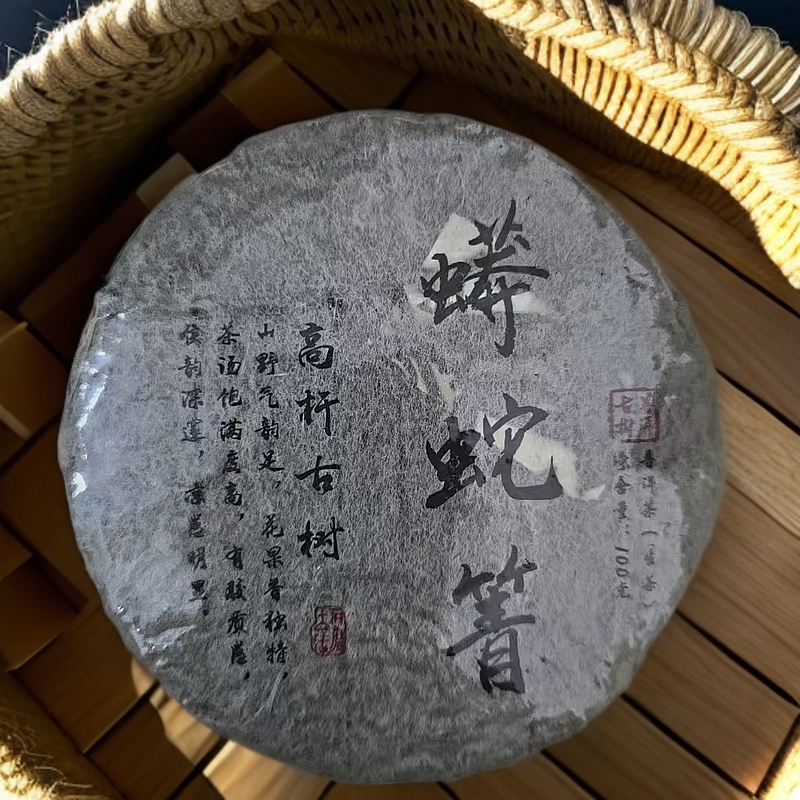 普洱茶（生茶）
净含量：100克
蟒蛇箐
高杆古树
山野气韵足，花果香独特，
茶汤饱满度高，有胶质感，
喉韵深邃，凉感明显。